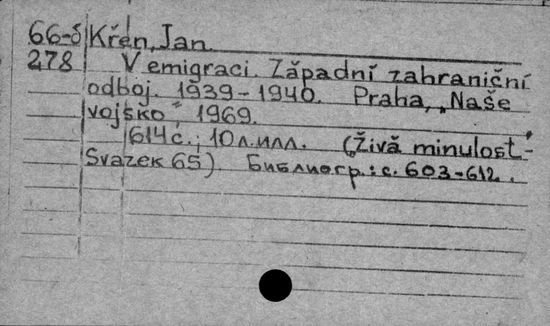 66-5 Křen, Jan.
278 V emigraci. Západní zahraniční
odboj. 1939-1940. Praha, „Naše
vojsko“, 1969.
614 с.; 10 л. илл. (Živá minulost.
Svazek 65) Библиогр.: с. 603-612.